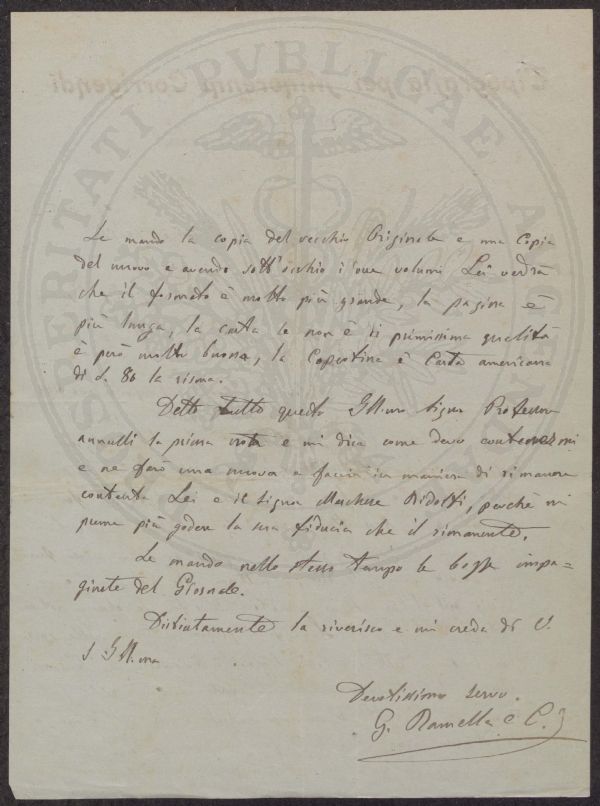 Le mando la copia del vecchio Originale e una Copia
del nuovo e avendo sott'occhio i due volumi Lei vedrà
che il formato è molto più grande, la pagina è
più lunga, la carta se non è di primissima qualità
è però molto buona, la Copertina è Carta americana
di L. 80 la risma.
Detto tutto questo Ill.mo Signor Professore
annulli la prima nota e mi dica come devo contenermi
e ne farò una nuova e faccia in maniera di rimanere
contenta Lei e il Signor Marchese Ridolfi, perchè mi
preme più godere la sua fiducia che il rimanente.
Le mando nello stesso tempo le bozze impa=
ginate del Giornale.
Distintamente la riverisco e mi creda di V.
S. Ill.ma
Devotissimo servo.
G. Ramella e C.
Tipografia pei Minorenni Corrigendi
PROSPERITATI PVBLICAE AVGENDAE